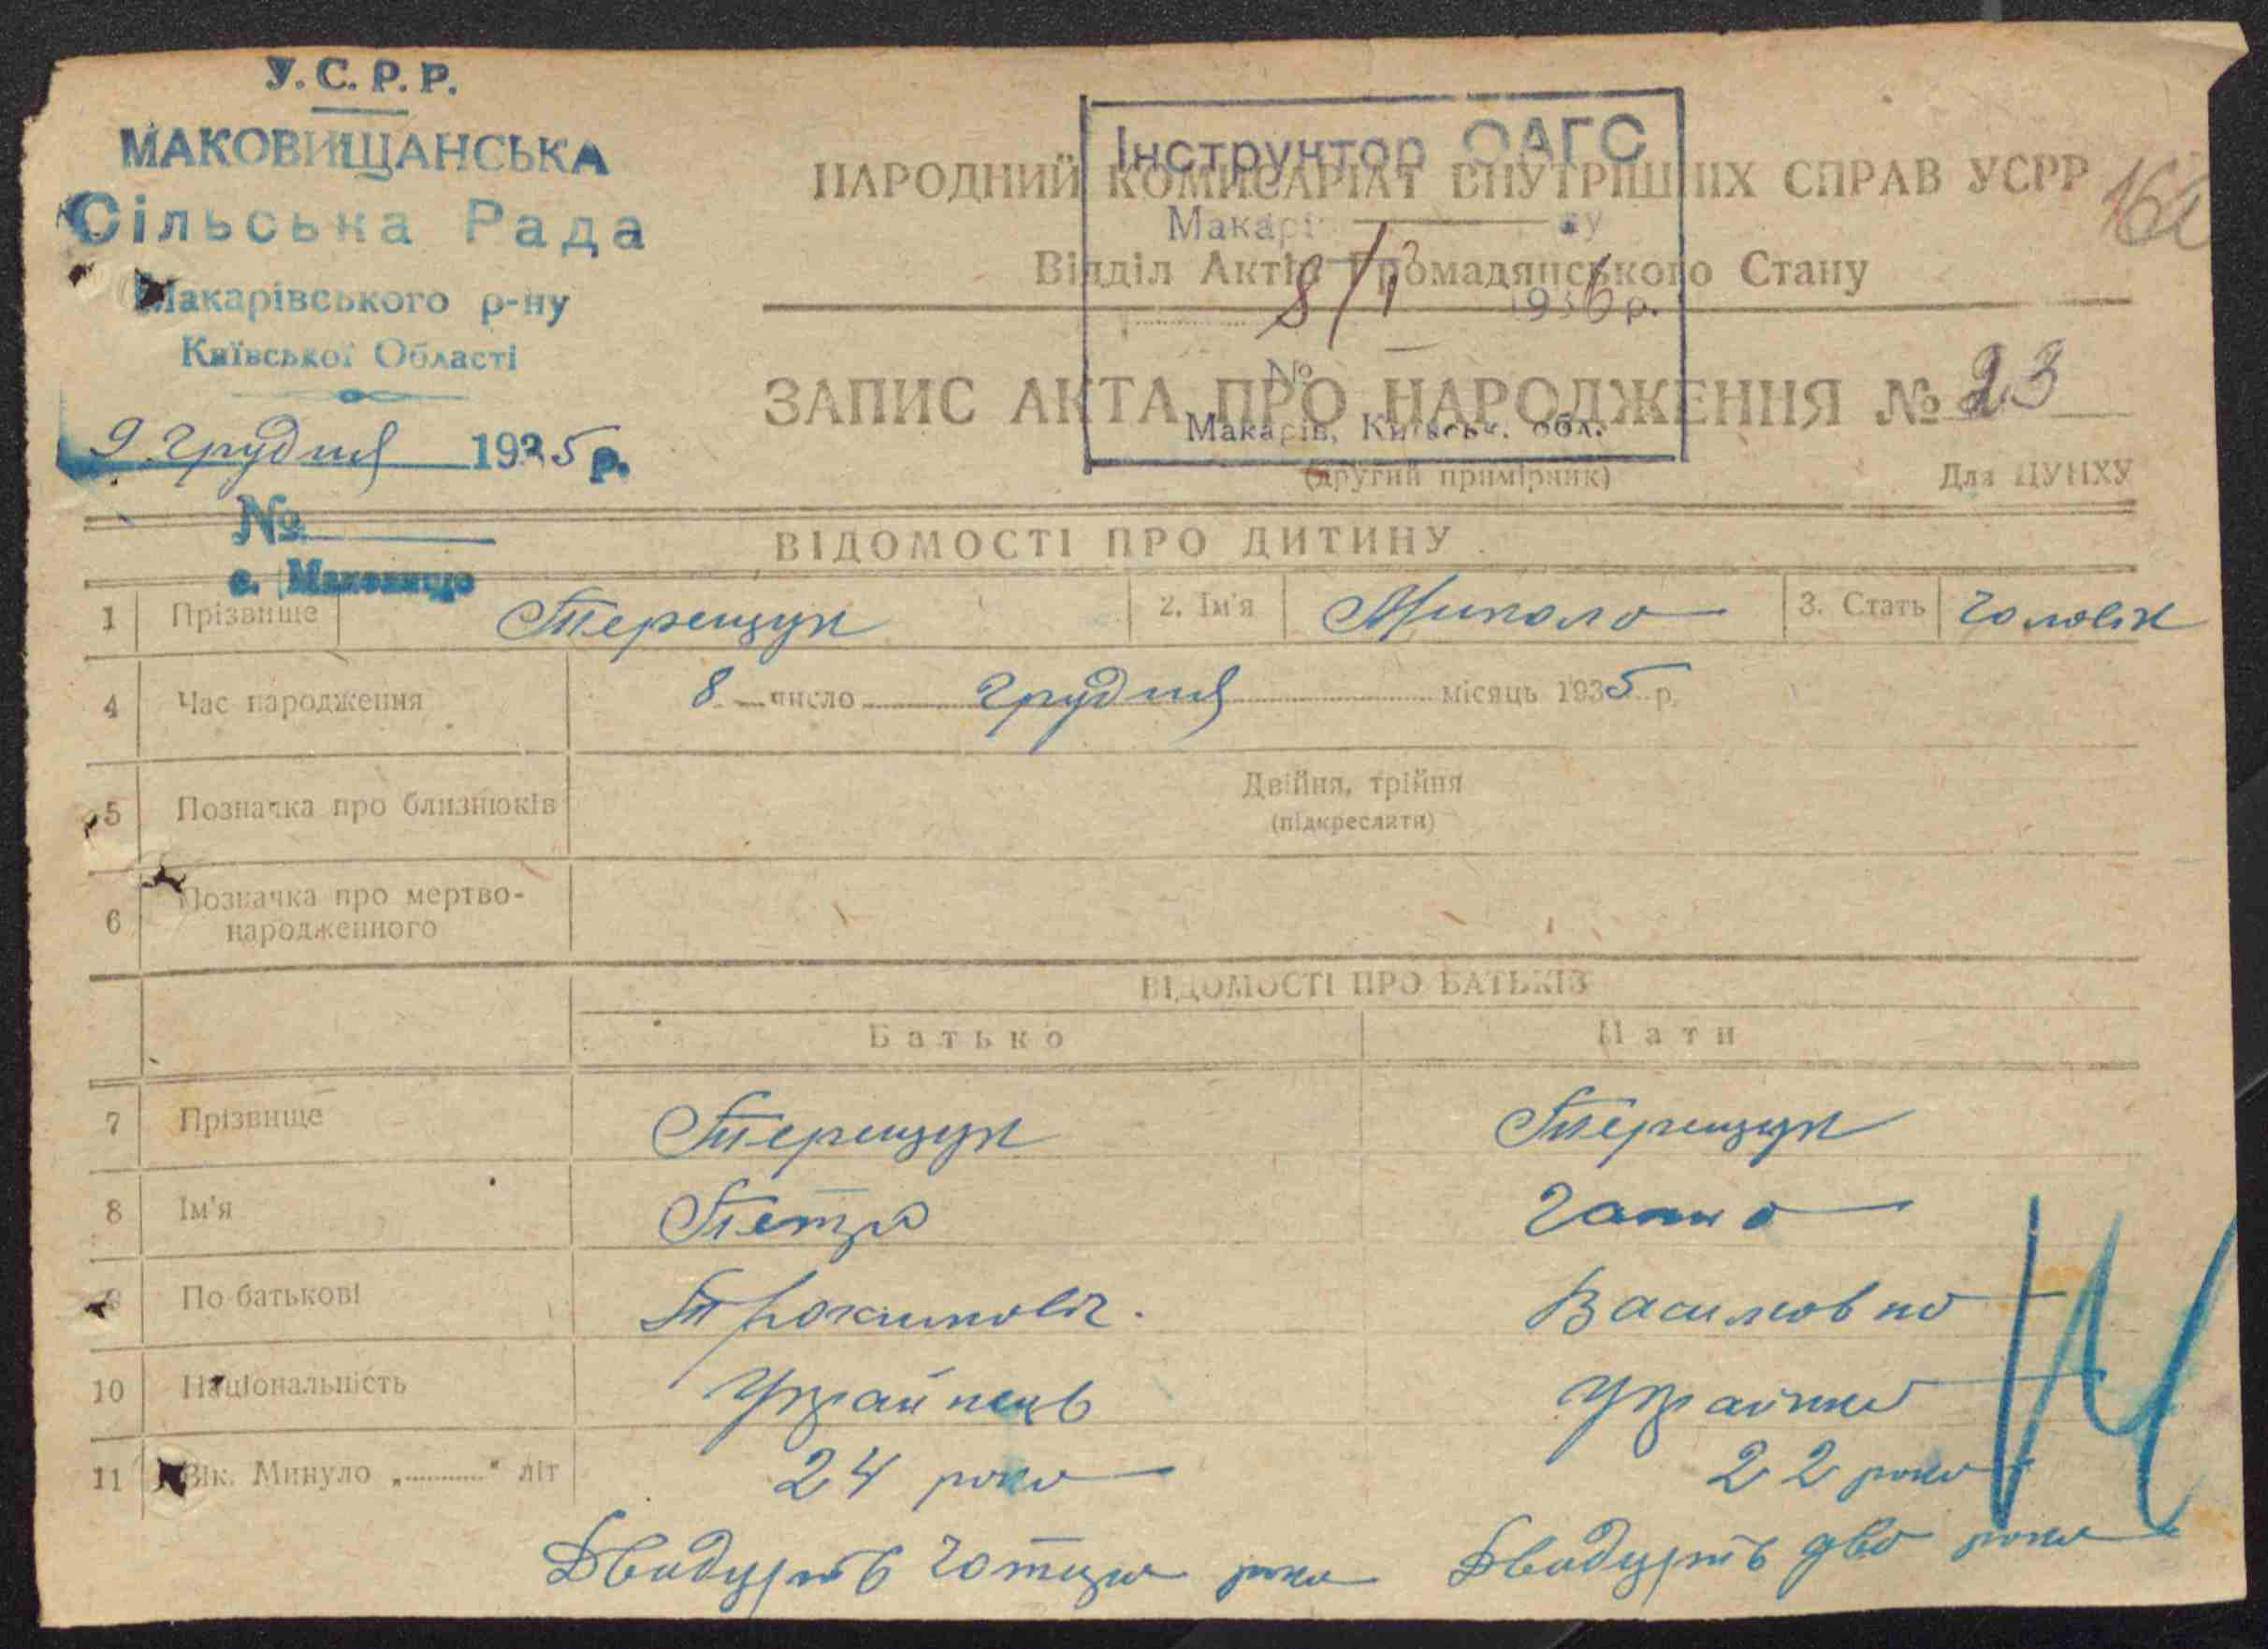 У.С.Р.Р.
МАКОВИЩАНСЬКА
Сільська Рада
Макарівського р-ну
Київської Області
9 грудня 1935 р.
№
с. Маковище
Інструктор ОАГС
8/І 1936 р.
№
Макарів, Київськ. обл.
НАРОДНИЙ КОМІСАРІАТ ВНУТРІШНІХ СПРАВ УСРР
Відділ Актів Громадянського Стану
ЗАПИС АКТА ПРО НАРОДЖЕННЯ № 23
(другий примірник) Для ЦУНХУ
ВІДОМОСТІ ПРО ДИТИНУ
1 Прізвище Терещук 2. Ім'я Микола 3. Стать Чоловік
4 Час народження 8 число грудня місяць 1935 р.
5 Позначка про близнюків Двійня, трійня
(підкреслити)
6 Позначка про мертво-
народженного
ВІДОМОСТІ ПРО БАТЬКІВ
Батько Мати
7 Прізвище Терещук Терещук
8 Ім'я Петро Ганна
9 По-батькові Василовна
10 Національність Украйнець Украінка
11 Вік. Минуло „ “ літ 24 роки 22 роки
Двадцять чотири роки Двадцять два роки